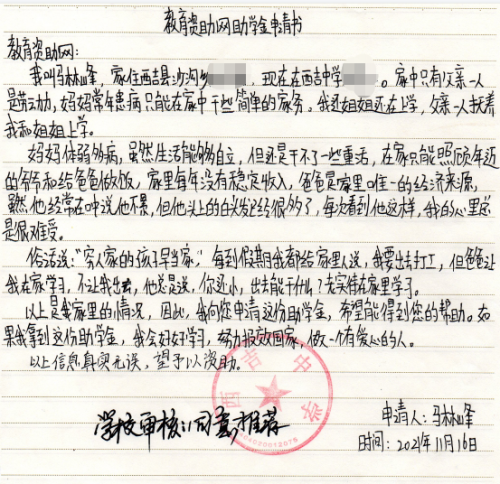 教育资助网助学金申请书
教育资助网:
我叫马林峰,家住西吉县沙沟乡 ,现在在西吉中学 。家中只有父亲一人
是劳动力,妈妈常年患病只能在家中干些简单的家务。我还姐姐还在上学,父亲一人扶养
我和姐姐上学。
妈妈体弱多病,虽然生活能够自立,但还是干不了一些重活,在家只能照顾年迈
的爷爷和给爸爸做饭,家里每年没有稳定收入,爸爸是家里唯一的经济来源,
虽然他经常在口中说他不累,但他头上的白发已经很多了,每次看到他这样,我的心里总
是很难受。
俗话说:“穷人家的孩子早当家,”每到假期我都给家里人说,我要出去打工,但爸爸让
我在家学习,不让我出去,他总是说,你还小,出去能干什么?老实待在家里学习。
以上是我家里的情况,因此,我向您申请这份助学金,希望能得到您的帮助。如
果我拿到这份助学金,我会好好学习,努力报效国家,做一个有爱心的人。
以上信息真实无误,望予以资助。
西吉中学
学校审核:同意推荐
申请人:马林峰
时间:2021年11月16日